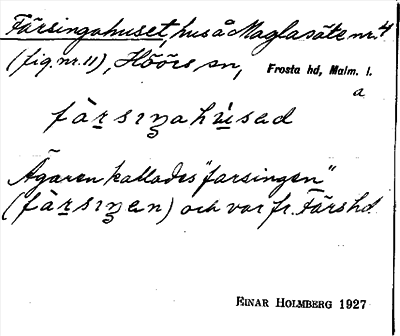 Färsingahuset, hus å Maglasäte nr. 4
(fig. nr. 11), Höörs sn, Frosta hd, Malm. l.
a
fàrsiŋahùsad
Ägaren kallades "farsingen"
(fàrsiŋen) och var fr. Färs hd
EINAR HOLMBERG 1927